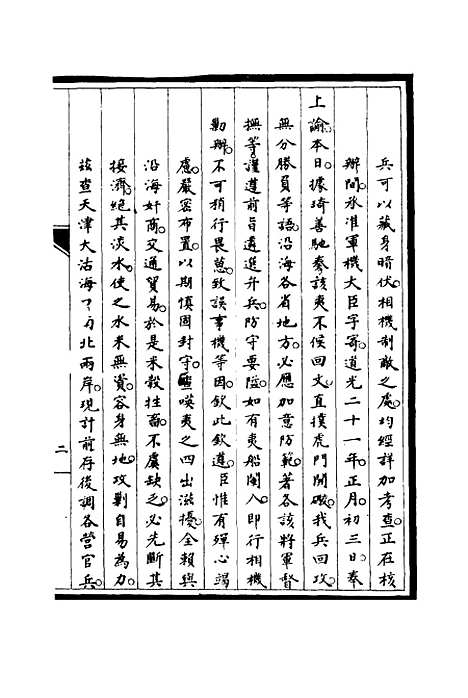 兵可以藏身暗伏相機制敵之處均經詳加考查正在核
辦間承准軍機大臣字寄道光二十一年正月初三日奉
上諭本日據琦善馳奏該夷不候回文直撲虎門開礮我兵回攻
無分勝負等語沿海各省地方必應加意防範著各該將軍督
撫等謹遵前旨遴選弁兵防守要隘如有夷船闌入即行相機
勦辦不可稍行畏葸致誤事機等因欽此欽遵臣惟有殫心竭
慮嚴密布置以期慎固封守暎夷之四出滋擾全賴與
沿海奸商交通貿易於是米穀牲畜不虞缺乏必先斷其
接濟絕其淡水使之水米無資容身無地攻剿自易為力
茲查天津大沽海口南北兩岸現計前存後調各營官兵
二